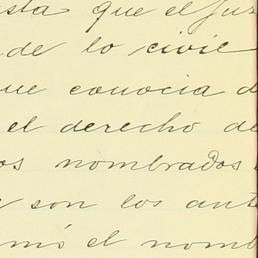 sta que el Juz
de lo civil
que conocia d
el derecho de
os nombrados
son los ant
mó el nomb